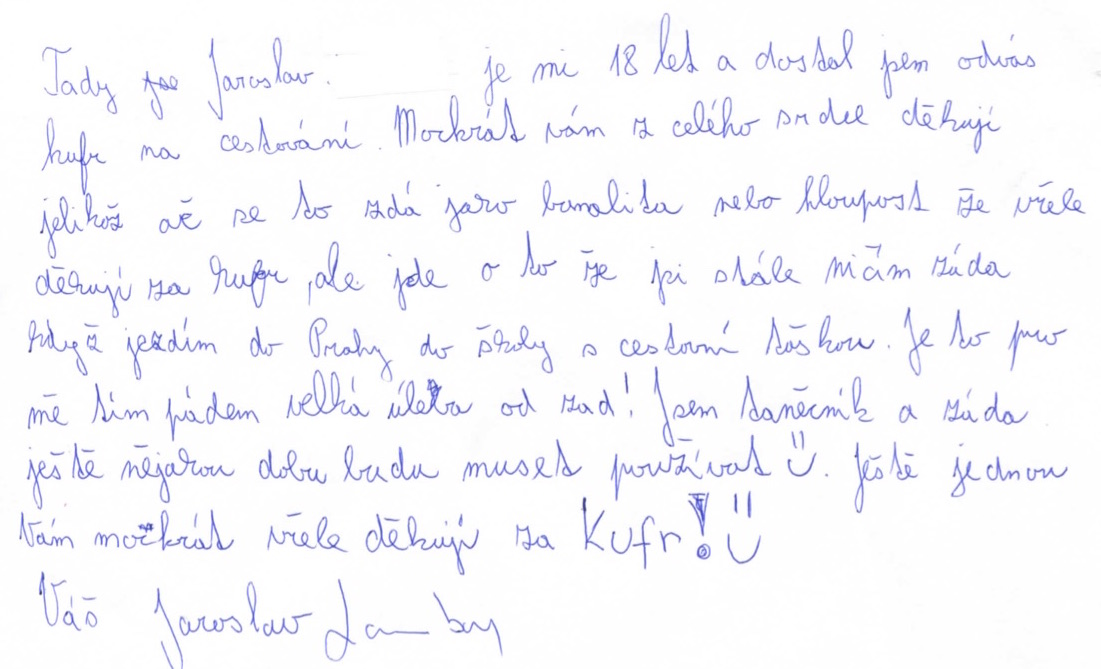 Tady Jaroslav. je mi 18 let a dostal jsem odvás
kufr na cestování. Mockrát vám z celého srdce děkuji
jelikož ač se to zdá jako banalita nebo hloupost že vřele
děkuji za kufr, ale jde o to že si stále ničím záda
když jezdím do Prahy do školy s cestovní taškou. Je to pro
mě tím pádem velká úleva od zad! Jsem tanečník a záda
ještě nějakou dobu budu muset používat Ü. Ještě jednou
Vám mockrát vřele děkuji za Kufr! Ü
Váš Jaroslav